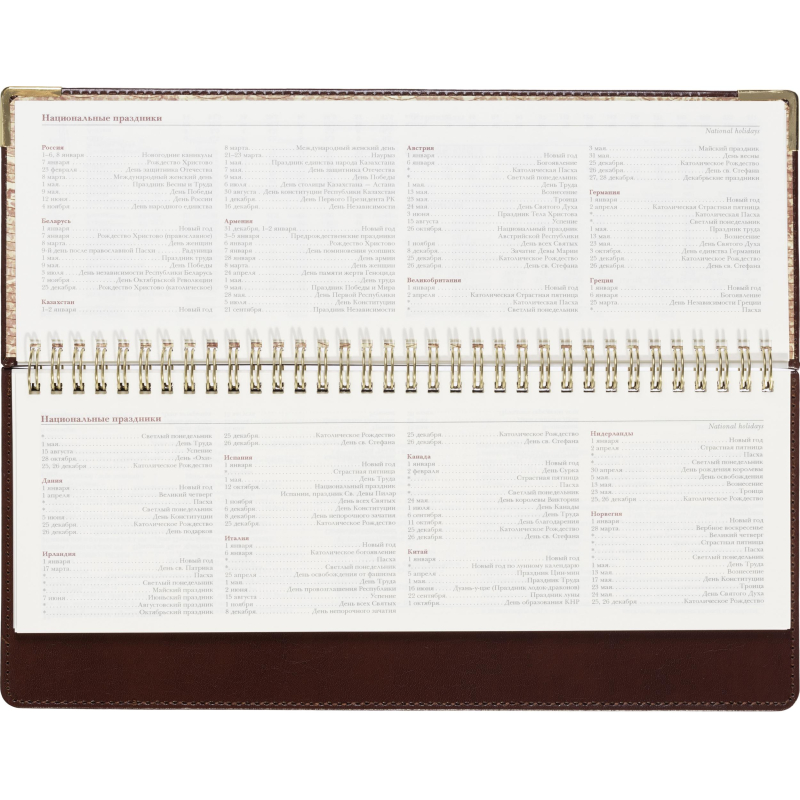 Национальные праздники
National holidays
Россия
1–6, 8 января Новогодние каникулы
7 января Рождество Христово
23 февраля День защитника Отечества
8 марта Международный женский день
1 мая Праздник Весны и Труда
9 мая День Победы
12 июня День России
4 ноября День народного единства
Беларусь
1 января Новый год
7 января Рождество Христово (православное)
8 марта День женщин
9-й день после православной Пасхи Радуница
1 мая Праздник труда
9 мая День Победы
3 июля День Независимости Республики Беларусь
7 ноября День Октябрьской Революции
25 декабря Рождество Христово (католическое)
Казахстан
1–2 января Новый год
8 марта Международный женский день
21–23 марта Наурыз
1 мая Праздник единства народа Казахстана
7 мая День защитника Отечества
9 мая День Победы
6 июля День столицы Казахстана — Астаны
30 августа День конституции Республики Казахстан
1 декабря День Первого Президента РК
16 декабря День Независимости
Армения
31 декабря, 1–2 января Новый год
3–5 января Предрождественские праздники
6 января Рождество Христово
7 января День поминовения усопших
28 января День армии
8 марта День женщин
24 апреля День памяти жертв Геноцида
1 мая День труда
9 мая Праздник Победы и Мира
28 мая День Первой Республики
5 июля День Конституции
21 сентября Праздник Независимости
Австрия
1 января Новый год
6 января Богоявление
* Католическая Пасха
* Светлый понедельник
1 мая День Труда
* Вознесение
* Троица
* День Святого Духа
* Праздник Тела Христова
15 августа Успение
26 октября Национальный праздник
Австрийской Республики
1 ноября День всех Святых
8 декабря Зачатие Девы Марии
25 декабря Католическое Рождество
26 декабря День св. Стефана
Великобритания
1 января Новый год
2 апреля Католическая Страстная пятница
* Католическая Пасха
* Светлый понедельник
3 мая Майский праздник
31 мая День весны
25 декабря Католическое Рождество
26 декабря День св. Стефана
27, 28 декабря Декабрьские праздники
Германия
1 января Новый год
2 апреля Католическая Страстная пятница
* Католическая Пасха
* Светлый понедельник
1 мая Праздник труда
13 мая Вознесение
23 мая День Святого Духа
3 октября День единства Германии
25 декабря Католическое Рождество
26 декабря День св. Стефана
Греция
1 января Новый год
6 января Богоявление
25 марта День Независимости Греции
* Пасха
Национальные праздники
National holidays
* Светлый понедельник
1 мая День Труда
15 августа Успение
28 октября День «Охи»
25, 26 декабря Католическое Рождество
Дания
1 января Новый год
1 апреля Великий четверг
* Пасха
* Светлый понедельник
5 июня День Конституции
25 декабря Католическое Рождество
26 декабря День подарков
Ирландия
1 января Новый год
17 марта День св. Патрика
* Пасха
* Светлый понедельник
* Майский праздник
* Июньский праздник
* Августовский праздник
* Октябрьский праздник
25 декабря Католическое Рождество
26 декабря День св. Стефана
Испания
1 января Новый год
* Страстная пятница
1 мая День Труда
12 октября Национальный праздник
Испании, праздник Св. Девы Пилар
1 ноября День всех Святых
6 декабря День Конституции
8 декабря День непорочного зачатия
25 декабря Католическое Рождество
Италия
1 января Новый год
6 января Католическое богоявление
* Пасха
* Светлый понедельник
25 апреля День освобождения от фашизма
1 мая День Труда
2 июня День провозглашения Республики
15 августа Успение
1 ноября День всех Святых
8 декабря День непорочного зачатия
25 декабря Католическое Рождество
26 декабря День св. Стефана
Канада
1 января Новый год
2 февраля День Сурка
* Страстная пятница
* Пасха
* Светлый понедельник
24 мая День королевы Виктории
1 июля День Канады
6 сентября День Труда
11 октября День благодарения
25 декабря Католическое Рождество
26 декабря День св. Стефана
Китай
1 января Новый год
* Новый год по лунному календарю
5 апреля Праздник Цинмин
1 мая Праздник Труда
16 июня Дуань-у-цзе (Праздник лодок-драконов)
22 сентября Праздник луны
1 октября День образования КНР
Нидерланды
1 января Новый год
2 апреля Страстная пятница
* Пасха
* Светлый понедельник
30 апреля День рождения королевы
5 мая День освобождения
13 мая Вознесение
23 мая Троица
25, 26 декабря Католическое Рождество
Норвегия
1 января Новый год
28 марта Вербное воскресенье
* Великий четверг
* Страстная пятница
* Пасха
* Светлый понедельник
1 мая День Труда
13 мая Вознесение
17 мая День Конституции
23 мая Троица
24 мая День Святого Духа
25, 26 декабря Католическое Рождество